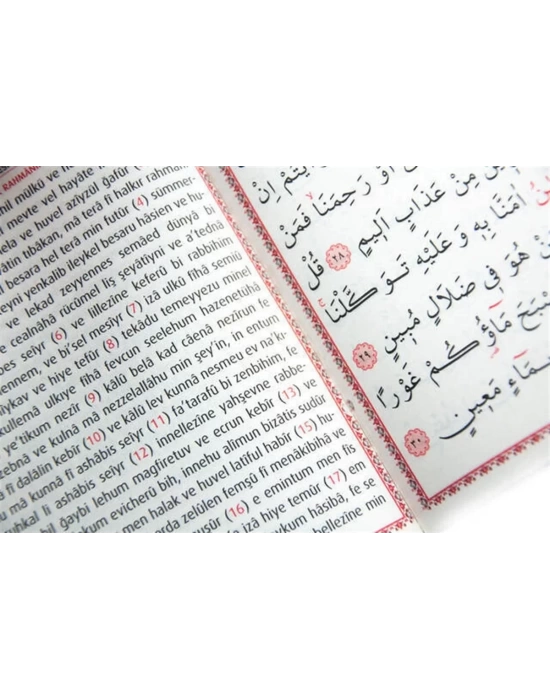 RAHMANİ
mil mülkü ve
meyte vel hayate
ve huvel azîyzül gafûr (4)
tıbâkan, mâ terâ fî halkır rahmani
besara hel terâ min futûr (4) sümmer-
yenkalib ileykel besaru hâsien ve hu-
ve lekad zeyyennes semâed dünyâ bi
cealnâhâ rücûmel liş şeyâtiyni ve a'tednâ
seiyr (6) ve lillezîne keferû bi rabbihim
ennem, ve bi'sel mesiyr (7) izâ ulkû fîhâ semiû
ve hiye tefûr (8) tekâdu temeyyezu minel
kullemâ ulkıye fîhâ fevcun seelehum hazenetühâ
e'tikum nezîr (9) kâlû belâ kad câenâ nezîrun fe
zebnâ ve kulnâ mâ nezzelallâhu min şey'in, in entum
fî dalâlin kebîr (10) ve kâlû lev kunnâ nesmeu ev na'kı-
mâ kunnâ fî ashâbis seiyr (11) fa'terafû bi zenbihim, fe
uhkal li ashâbis seiyr (12) innellezîne yahşevne rabbe-
bil ğaybi lehum mağfiretuv ve ecrun kebîr (13) ve
evicherû bih, innehu alîmun bizâtis sudûr
men halak ve huvel latîful habîr (15) hu-
zelûlen femşû fî menâkibihâ ve
nuşûr (16) e emintum men fis
izâ hiye temûr (17) em
hâsibâ, fe se
bellezîne min
اِنْ
اَوْ رَحِمَنَا فَمَنْ
مِنْ عَذَابٍ اَلِيمٍ ﴿٢٨﴾ قُلْ
اٰمَنَّا بِهِ وَ عَلَيْهِ تَوَكَّلْنَا
هُوَ فِى ضَلَالٍ مُبِينٍ ﴿٢٩﴾
مَاؤُكُمْ غَوْرًا
مَعِينٍ ﴿٣٠﴾